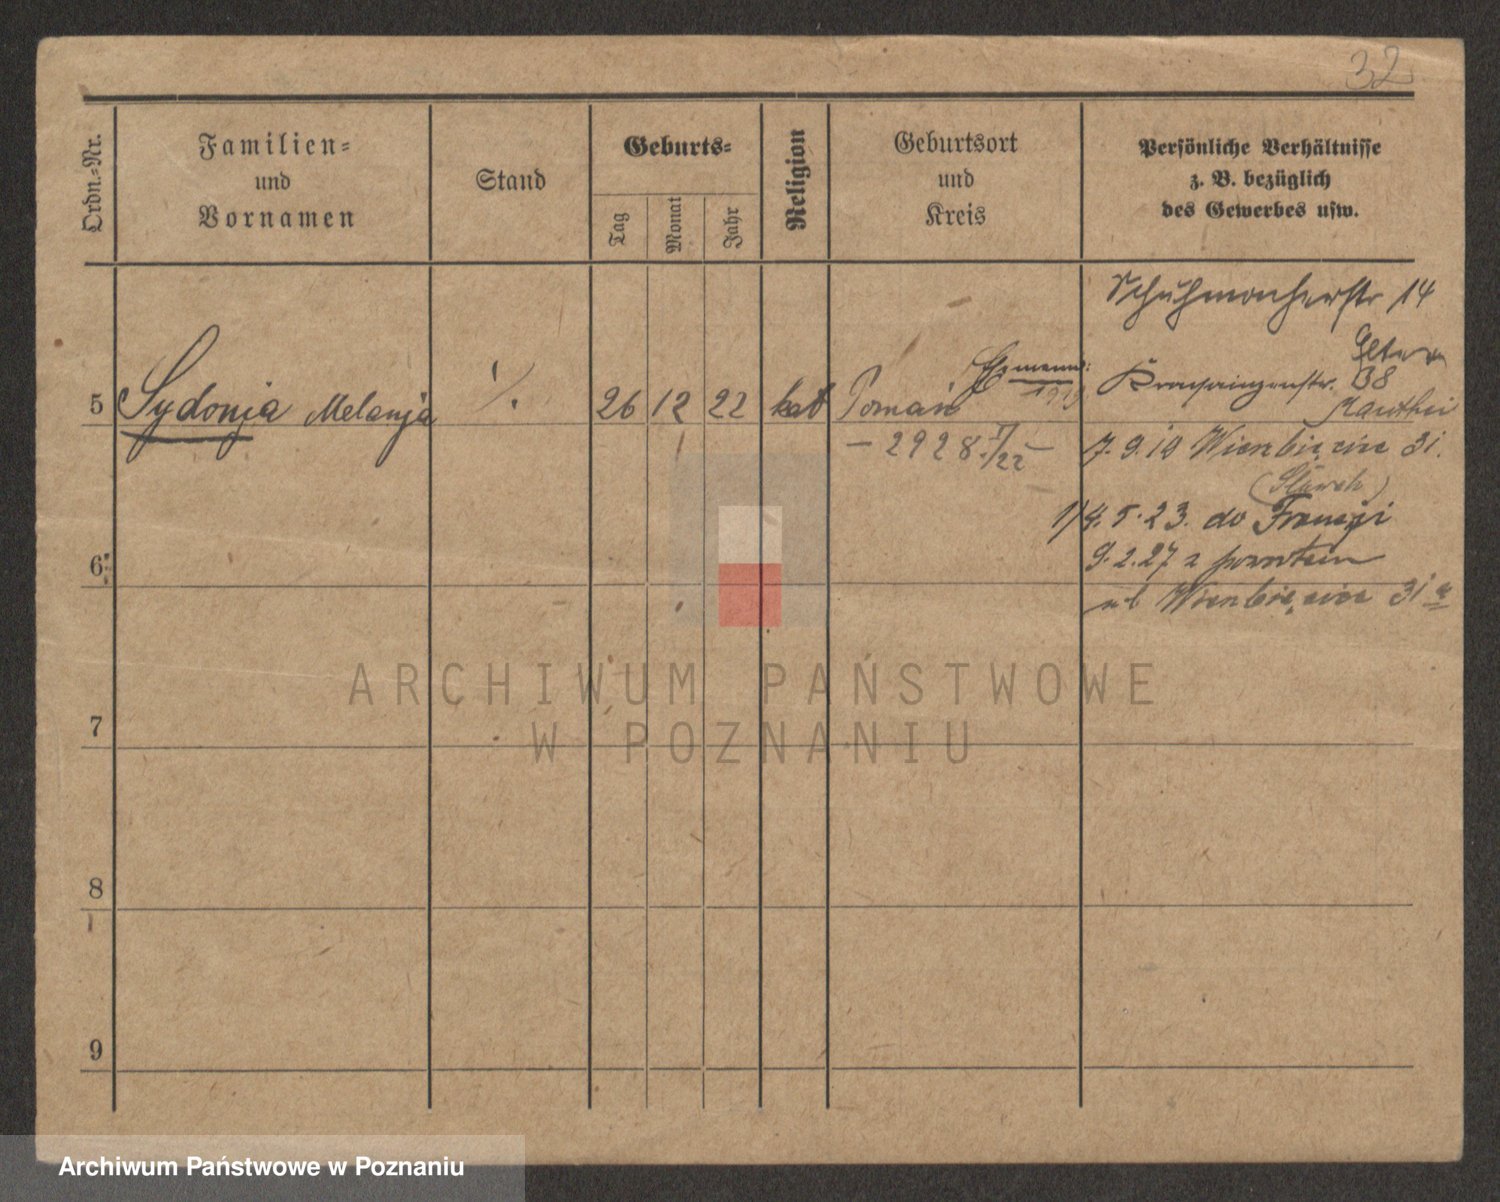 32
Ordn.-Nr.
Familien-
und
Vornamen
Stand
Geburts-
Tag
Monat
Jahr
Religion
Geburtsort
und
Kreis
Persönliche Verhältnisse
z. B. bezüglich
des Gewerbes usw.
Schuhmacherstr 14
5 Sydonja Melanja ·/. 26 12 22 kat Poznań Kronprinzenstr. 38
1919
Manthei
— 2928 V/22 — 7.9.19 Wierzbięcice 31.
14.5.23. do Francji
6
9.2.27 z powrotem
ul Wierzbięcice 31 a
7
8
9
ARCHIWUM PAŃSTWOWE
W POZNANIU
Archiwum Państwowe w Poznaniu